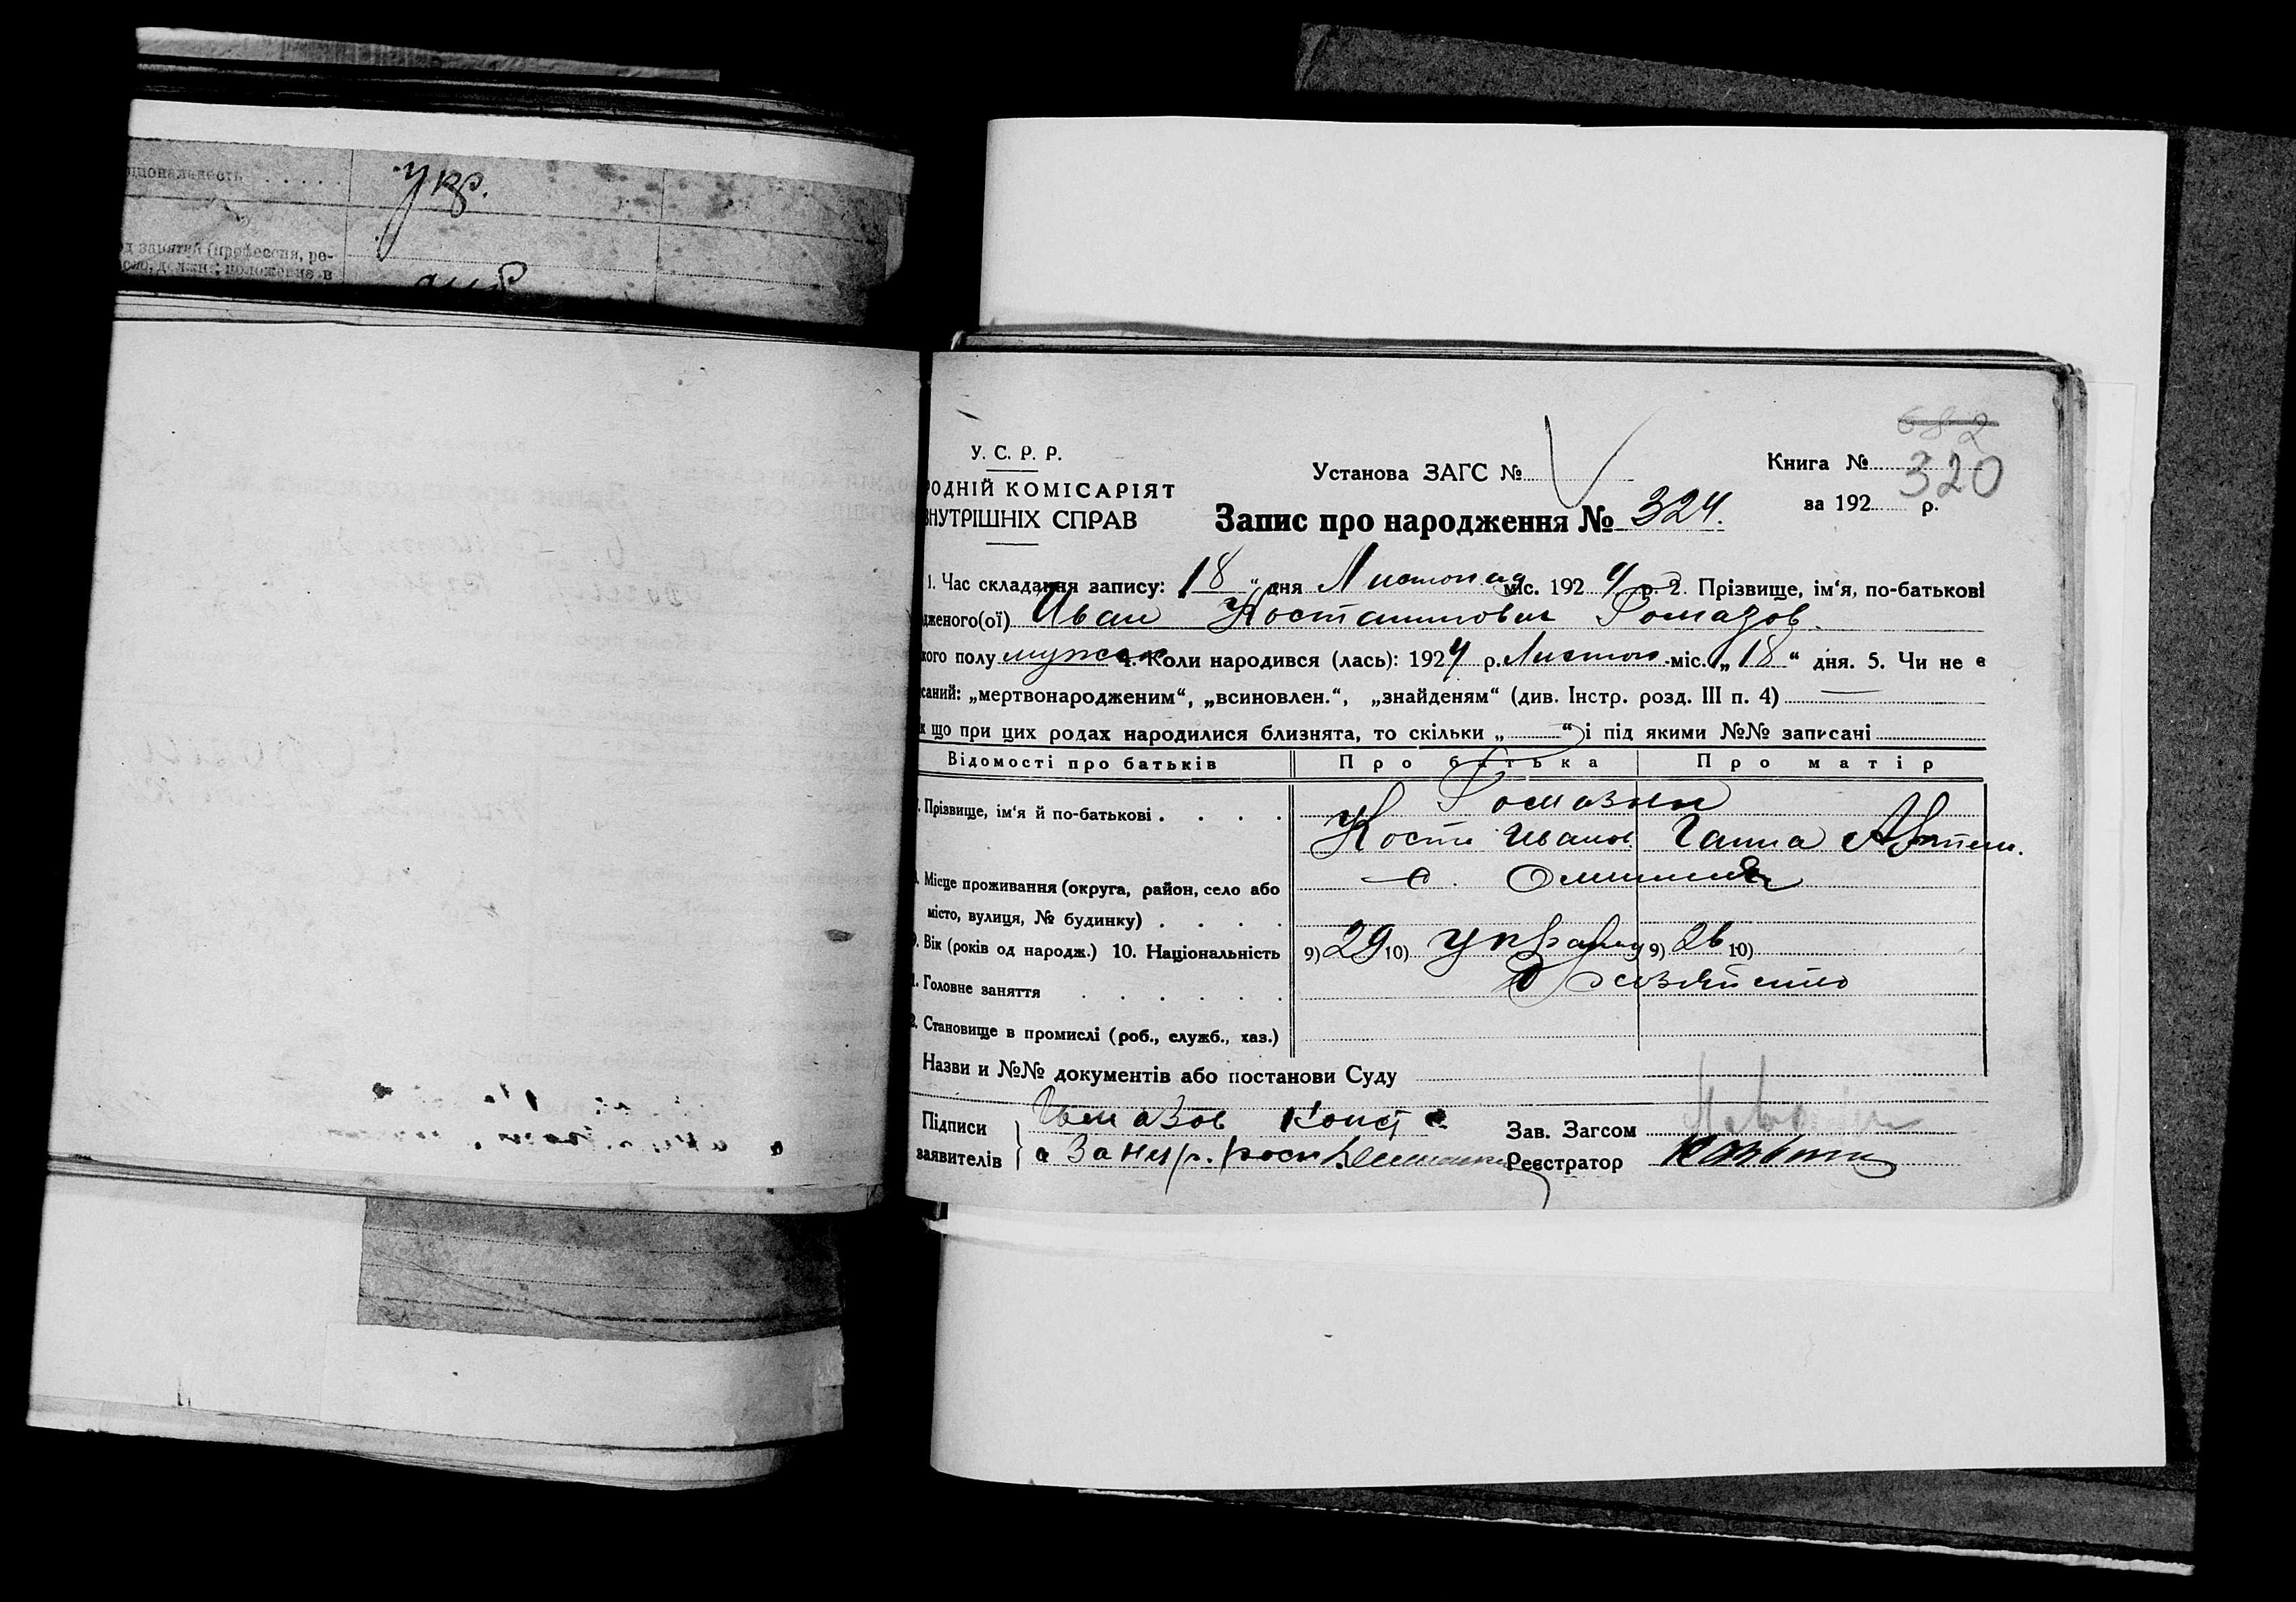 ціональность . . . . . укр.
д занятий (профессия, ре-
сло, должн.; положение в
682
У. С. Р. Р.
Установа ЗАГС №
Книга № 320
РОДНІЙ КОМІСАРІЯТ
ВНУТРІШНІХ СПРАВ
за 192 р.
Запис про народження № 324.
1. Час складання запису: 18 " дня Листопад міс. 1924 р. 2. Прізвище, ім'я, по-батькові
дженого(ої) Иван Костантинович Ромазов.
кого полу мужск 4. Коли народився (лась): 1924 р. Листоп. міс. „18“ дня. 5. Чи не є
саний: „мертвонародженим“, „всиновлен.“, „знайденям“ (див. Інстр. розд. III п. 4) —
к що при цих родах народилися близнята, то скільки „ “ і під якими №№ записані
Відомості про батьків Про батька Про матір
Прізвище, ім'я й по-батькові . . . .
Кость Иванов Ганна
Місце проживання (округа, район, село або с.
місто, вулиця, № будинку) . . . .
9. Вік (років од народж.) 10. Національність 9) 29 10) 9) 26 10)
1. Головне заняття . . . . . .
2. Становище в промислі (роб., служб., хаз.)
Назви и №№ документів або постанови Суду
Підписи Конст
Зав. Загсом
заявителів а За негр. роси
Реєстратор